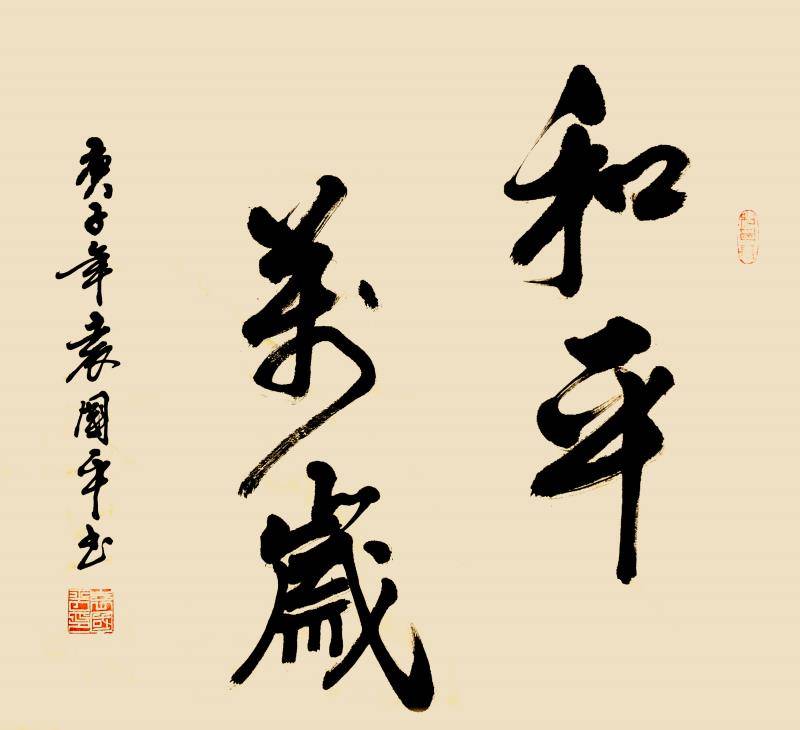 和平
萬歲
庚子年袁國平书